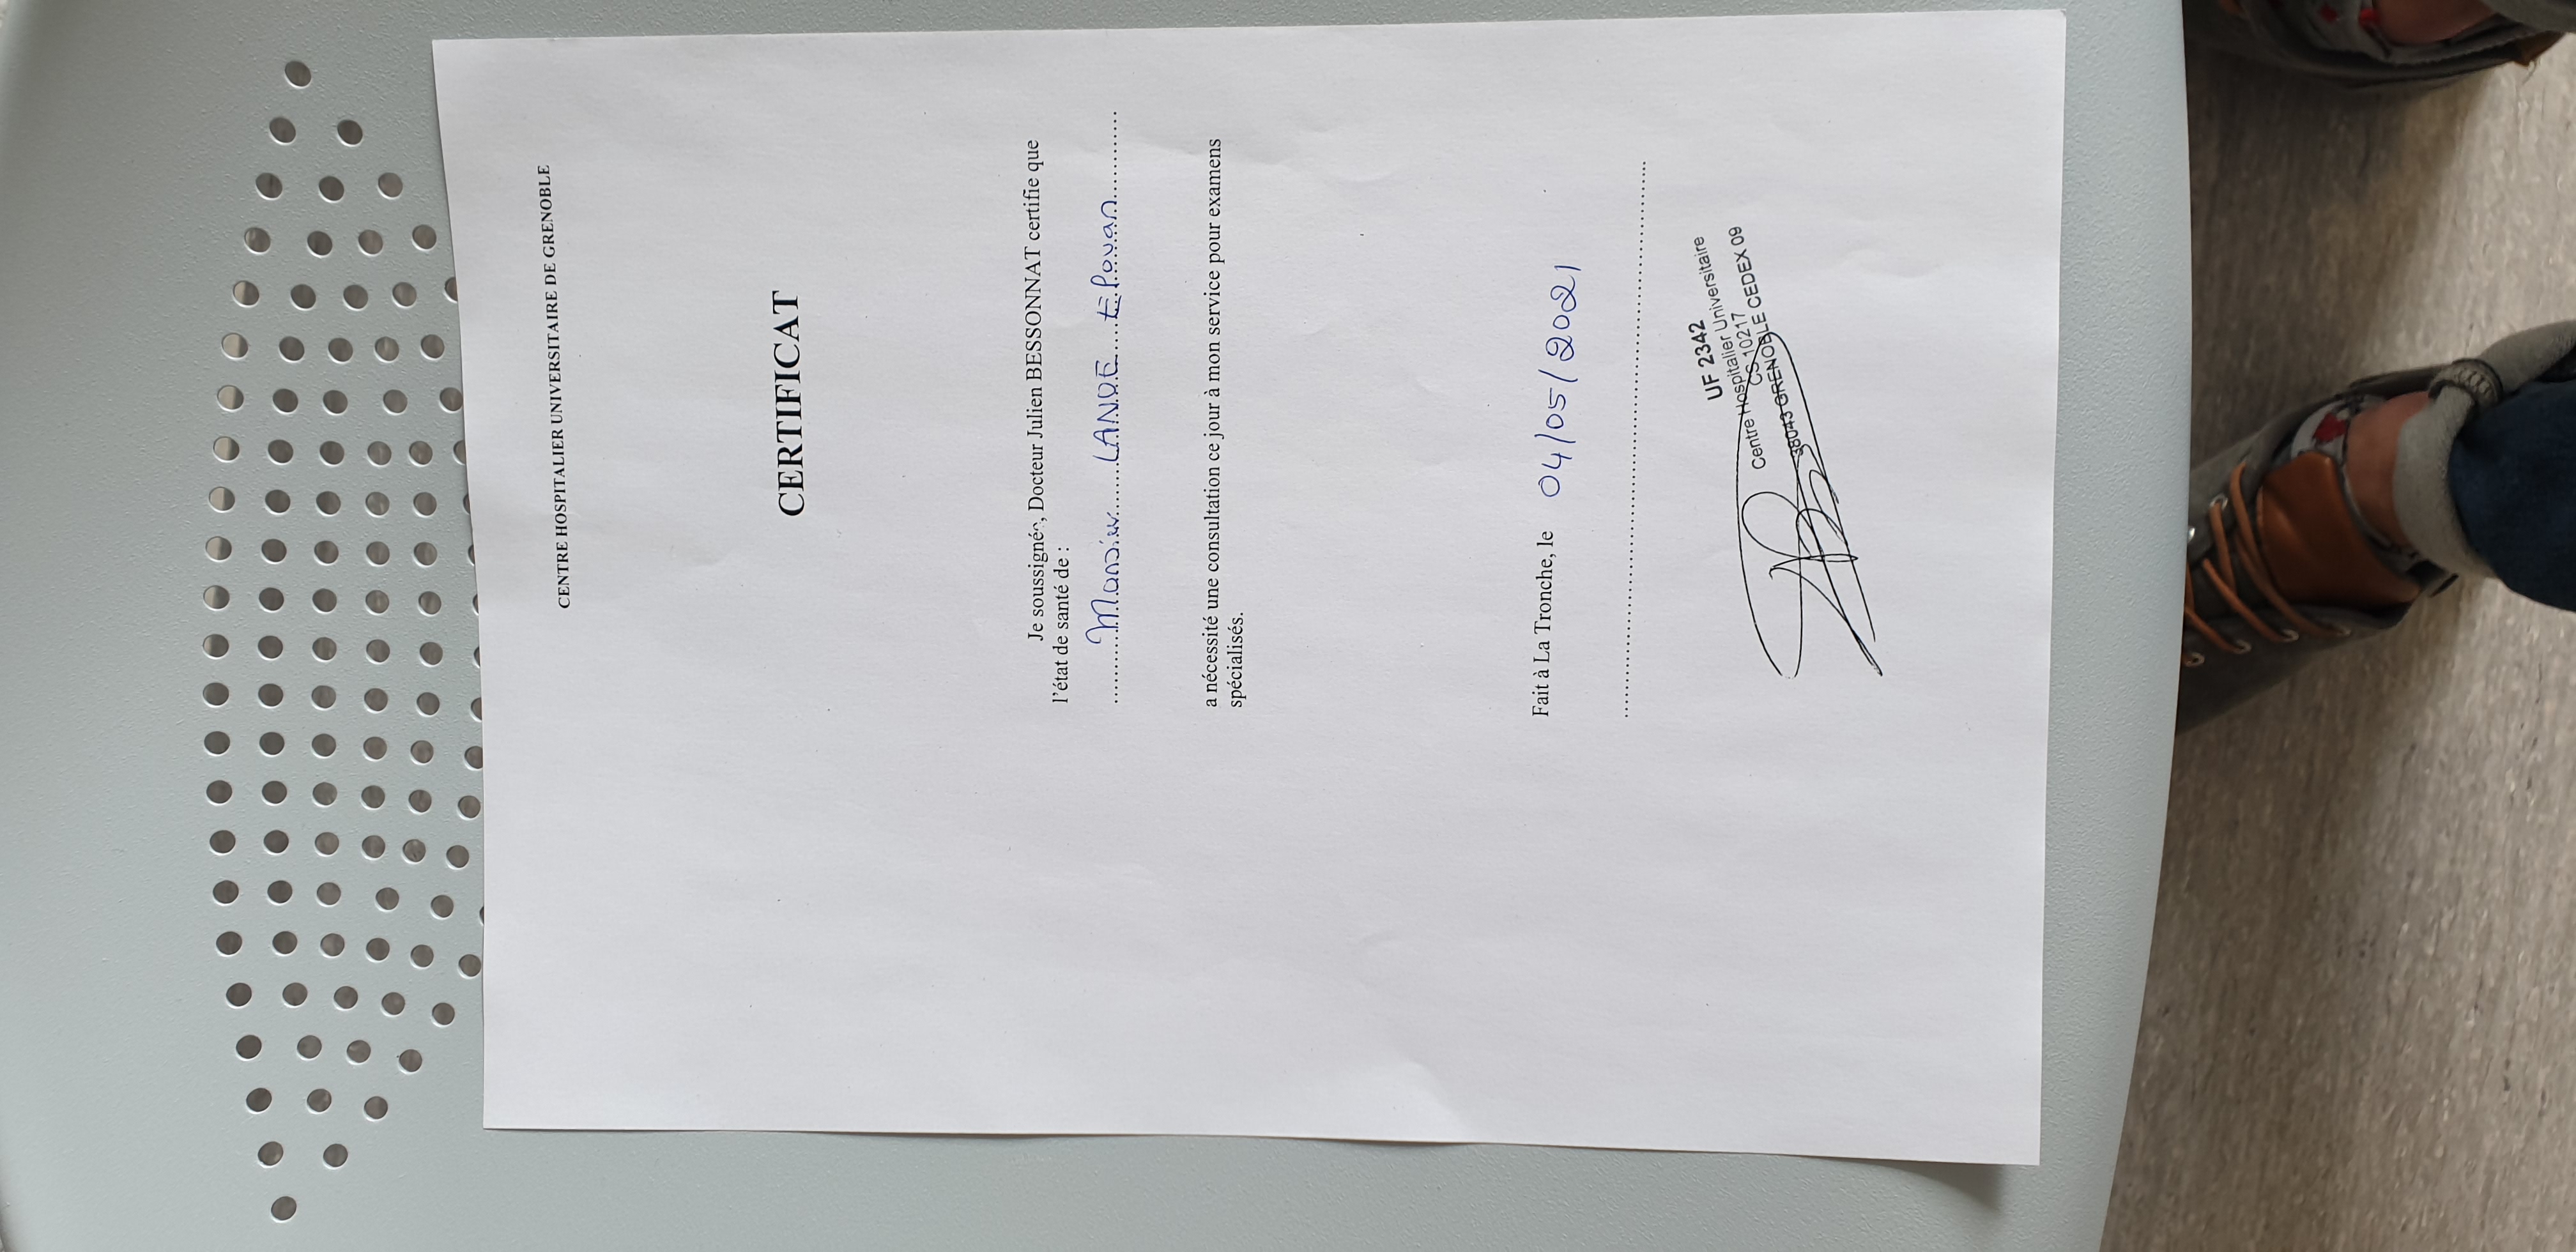 CENTRE HOSPITALIER UNIVERSITAIRE DE GRENOBLE
CERTIFICAT
Je soussignée, Docteur Julien BESSONNAT certifie que
l'état de santé de :
Monsieur LANOE Elouan
a nécessité une consultation ce jour à mon service pour examens
spécialisés.
Fait à La Tronche, le 04/05/2021
UF 2342
Centre Hospitalier Universitaire
CS 10217
38043 GRENOBLE CEDEX 09